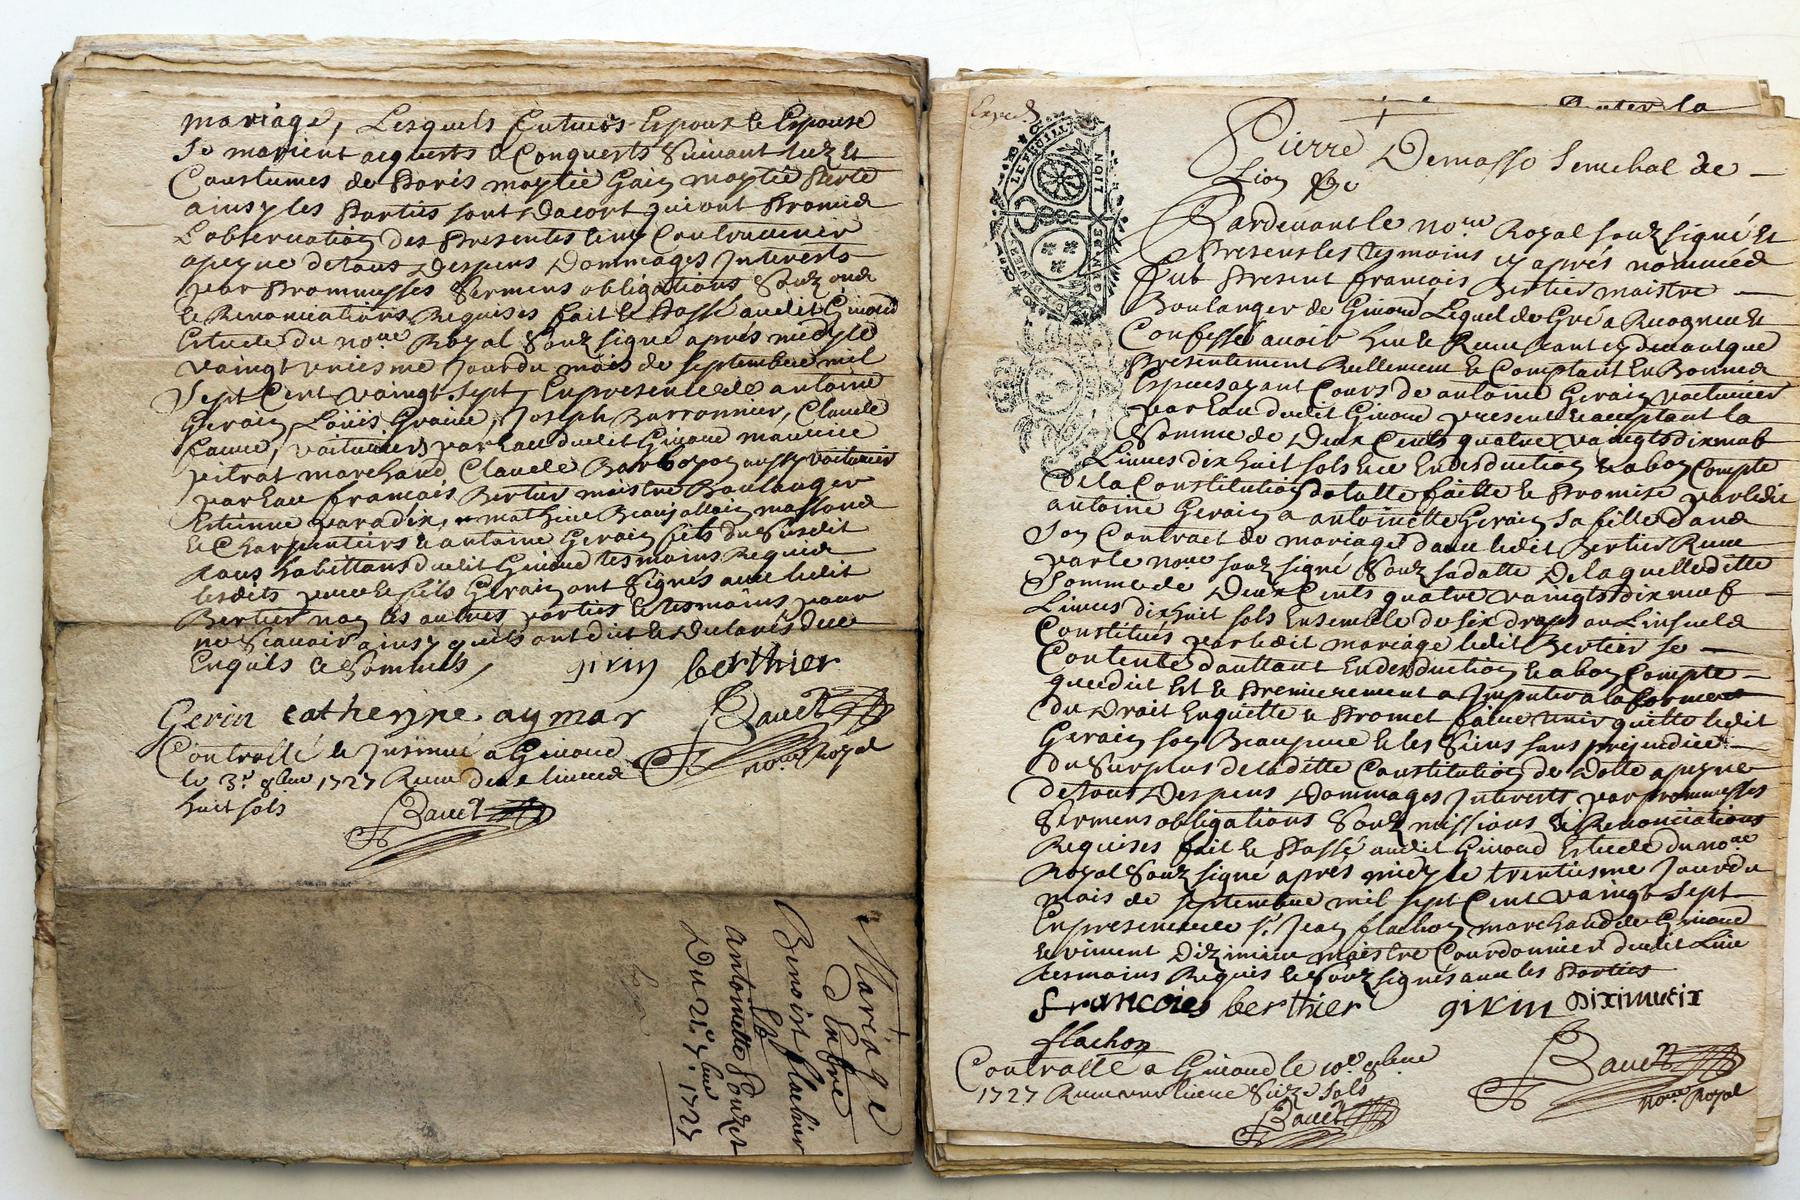 mariage, Lesquels futurs Espoux & Espouse
Se marient acquerts & Conquerts Suivant Luz et
Coustumes de Paris moytié Gain moytié Perte
ainsy les Parties sont Dacort qui ont Promis
L'observation des Presentes sans Contrevenir
a peyne de tous Despens Dommages Interets
par Promesses Sermens obligations
& Renonciations Requises fait & Passé audit Givord
Estude du no.re Royal Souz signé après midy le
vaingt uniesme Jour du mois de septembre mil
Sept Cent vaingt Sept, En presence de antoine
Gerain, Loüis Graine, Joseph Barronnier, Claude
voituriers par Eau dudit Givord maurice
pitrat marchand Claude aussy voiturier
par Eau françois Bertier maistre Boulanger
Estienne paradix, mathieu massons
& Charpentiers & antoine Gerain fils du Susdit
tous habittans dudit Givord tesmoins Requis
Lesdits pere & fils Gerain ont Signés avec ledit
Bertier non les autres parties & tesmoins pour
ne Scavoir ainsy quils ont dit & Declaré de ce
Enquis & Sommés,
girin berthier
Gerin catherine aymar
Bauet
no.re Royal
Controllé & Insinué a Givord
le 3.e 8bre 1727 Receu deux livres
huit sols
Bauet
Mariage
Entre
Benoist flachier
Et
antoinette
Du 21.e 7.bre 1727
Exped.
LE FEUILL
LION
Pierre Demasso Senechal de
Lion &c
Pardevant le no.re Royal souz signé et
Presens les tesmoins cy après nommés
fut Present françois Bertier maistre
Boulanger de Givord Lequel de Gré a Recogneu et
Confessé avoir heu & Receu avant cy devant que
Presentement Reellement & Comptant En Bonnes
Especes ayant Cours de antoine Gerain voiturier
par Eau dudit Givord present & acceptant la
Somme de Deux Cents quatre vaingts dix neuf
Livres dix huit sols & ce En desduction & a bon Compte
De la Constitution dotalle faitte & Promise par ledit
antoine Gerain a antoinette Gerain sa fille dans
Son Contrat de mariage d'avec ledit Bertier Receu
par le no.re souz signé Souz sa datte De laquelle ditte
Somme de Deux Cents quatre vaingts dix neuf
Livres dix huit sols Ensemble de six draps ou Linseuls
Constitués par ledit mariage ledit Bertier se
Contente d'auttant En desduction & a bon Compte
que dict Est & Premierement a Imputer a la forme
du Droit En quitte & Promet faire tenir quitte ledit
Gerain son Beaupere & les Siens sans prejudice
du Surplus de laditte Constitution de Dotte a peyne
de tous Despens Dommages Interets par promesses
Sermens obligations Souzmissions & Renonciations
Requises fait & Passé audit Givord Estude du no.re
Royal Souz signé après midy le trentiesme Jour du
mois de septembre mil sept Cent vaingt Sept
En presence de s.r Jean flachon marchand de Givord
& viment Dizimieu maistre Courdonnier dudit Lieu
tesmoins Requis & Souz signés avec les Parties
francoies berthier girin Diximieix
flachon
Bauet
no.re Royal
Controllé a Givord le 10.e 8.bre
1727 Receu une livre Seize sols
Bauet